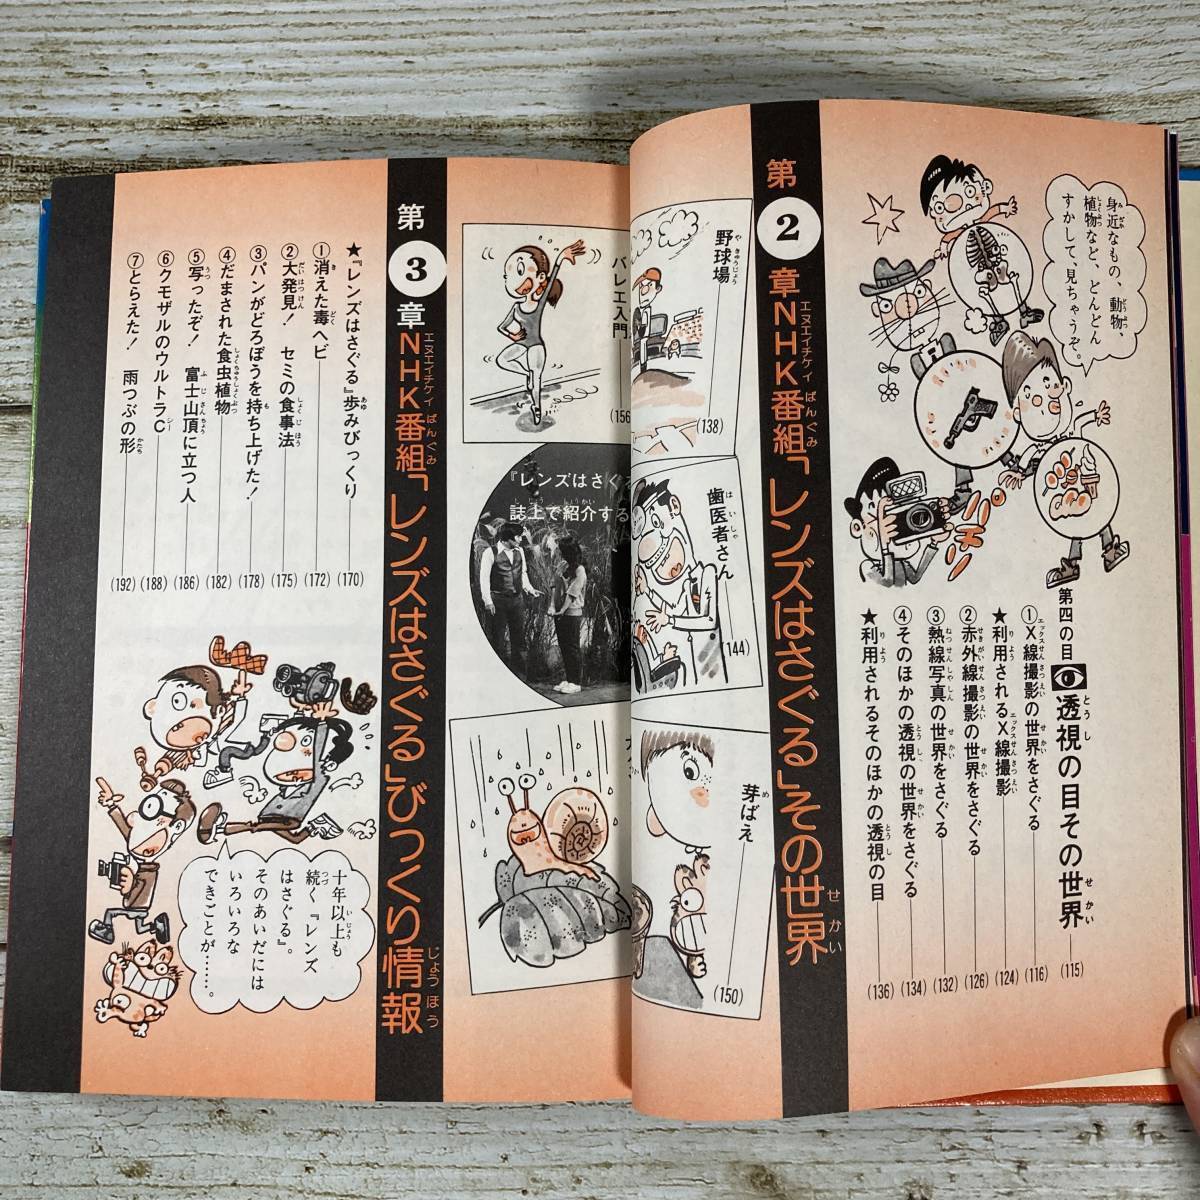 身近なもの、動物、
植物など、どんどん
すかして、見ちゃうぞ。
パチ
第四の目 透視の目その世界(115)
①X線撮影の世界をさぐる(116)
★利用されるX線撮影(124)
②赤外線撮影の世界をさぐる(126)
③熱線写真の世界をさぐる(132)
④そのほかの透視の世界をさぐる(134)
★利用されるそのほかの透視の目(136)
第2章NHK番組「レンズはさぐる」その世界
野球場
(138)
歯医者さん
144)
芽ばえ
(150)
バレエ入門
(156
『レンズはさぐる
誌上で紹介する
第3章NHK番組「レンズはさぐる」びっくり情報
★『レンズはさぐる』歩みびっくり(170)
①消えた毒ヘビ(172)
②大発見! セミの食事法(175)
③パンがどろぼうを持ち上げた!(178)
④だまされた食虫植物(182)
⑤写ったぞ! 富士山頂に立つ人(186)
⑥クモザルのウルトラC(188)
⑦とらえた! 雨つぶの形(192)
十年以上も
続く『レンズ
はさぐる』。
そのあいだには
いろいろな
できごとが……。